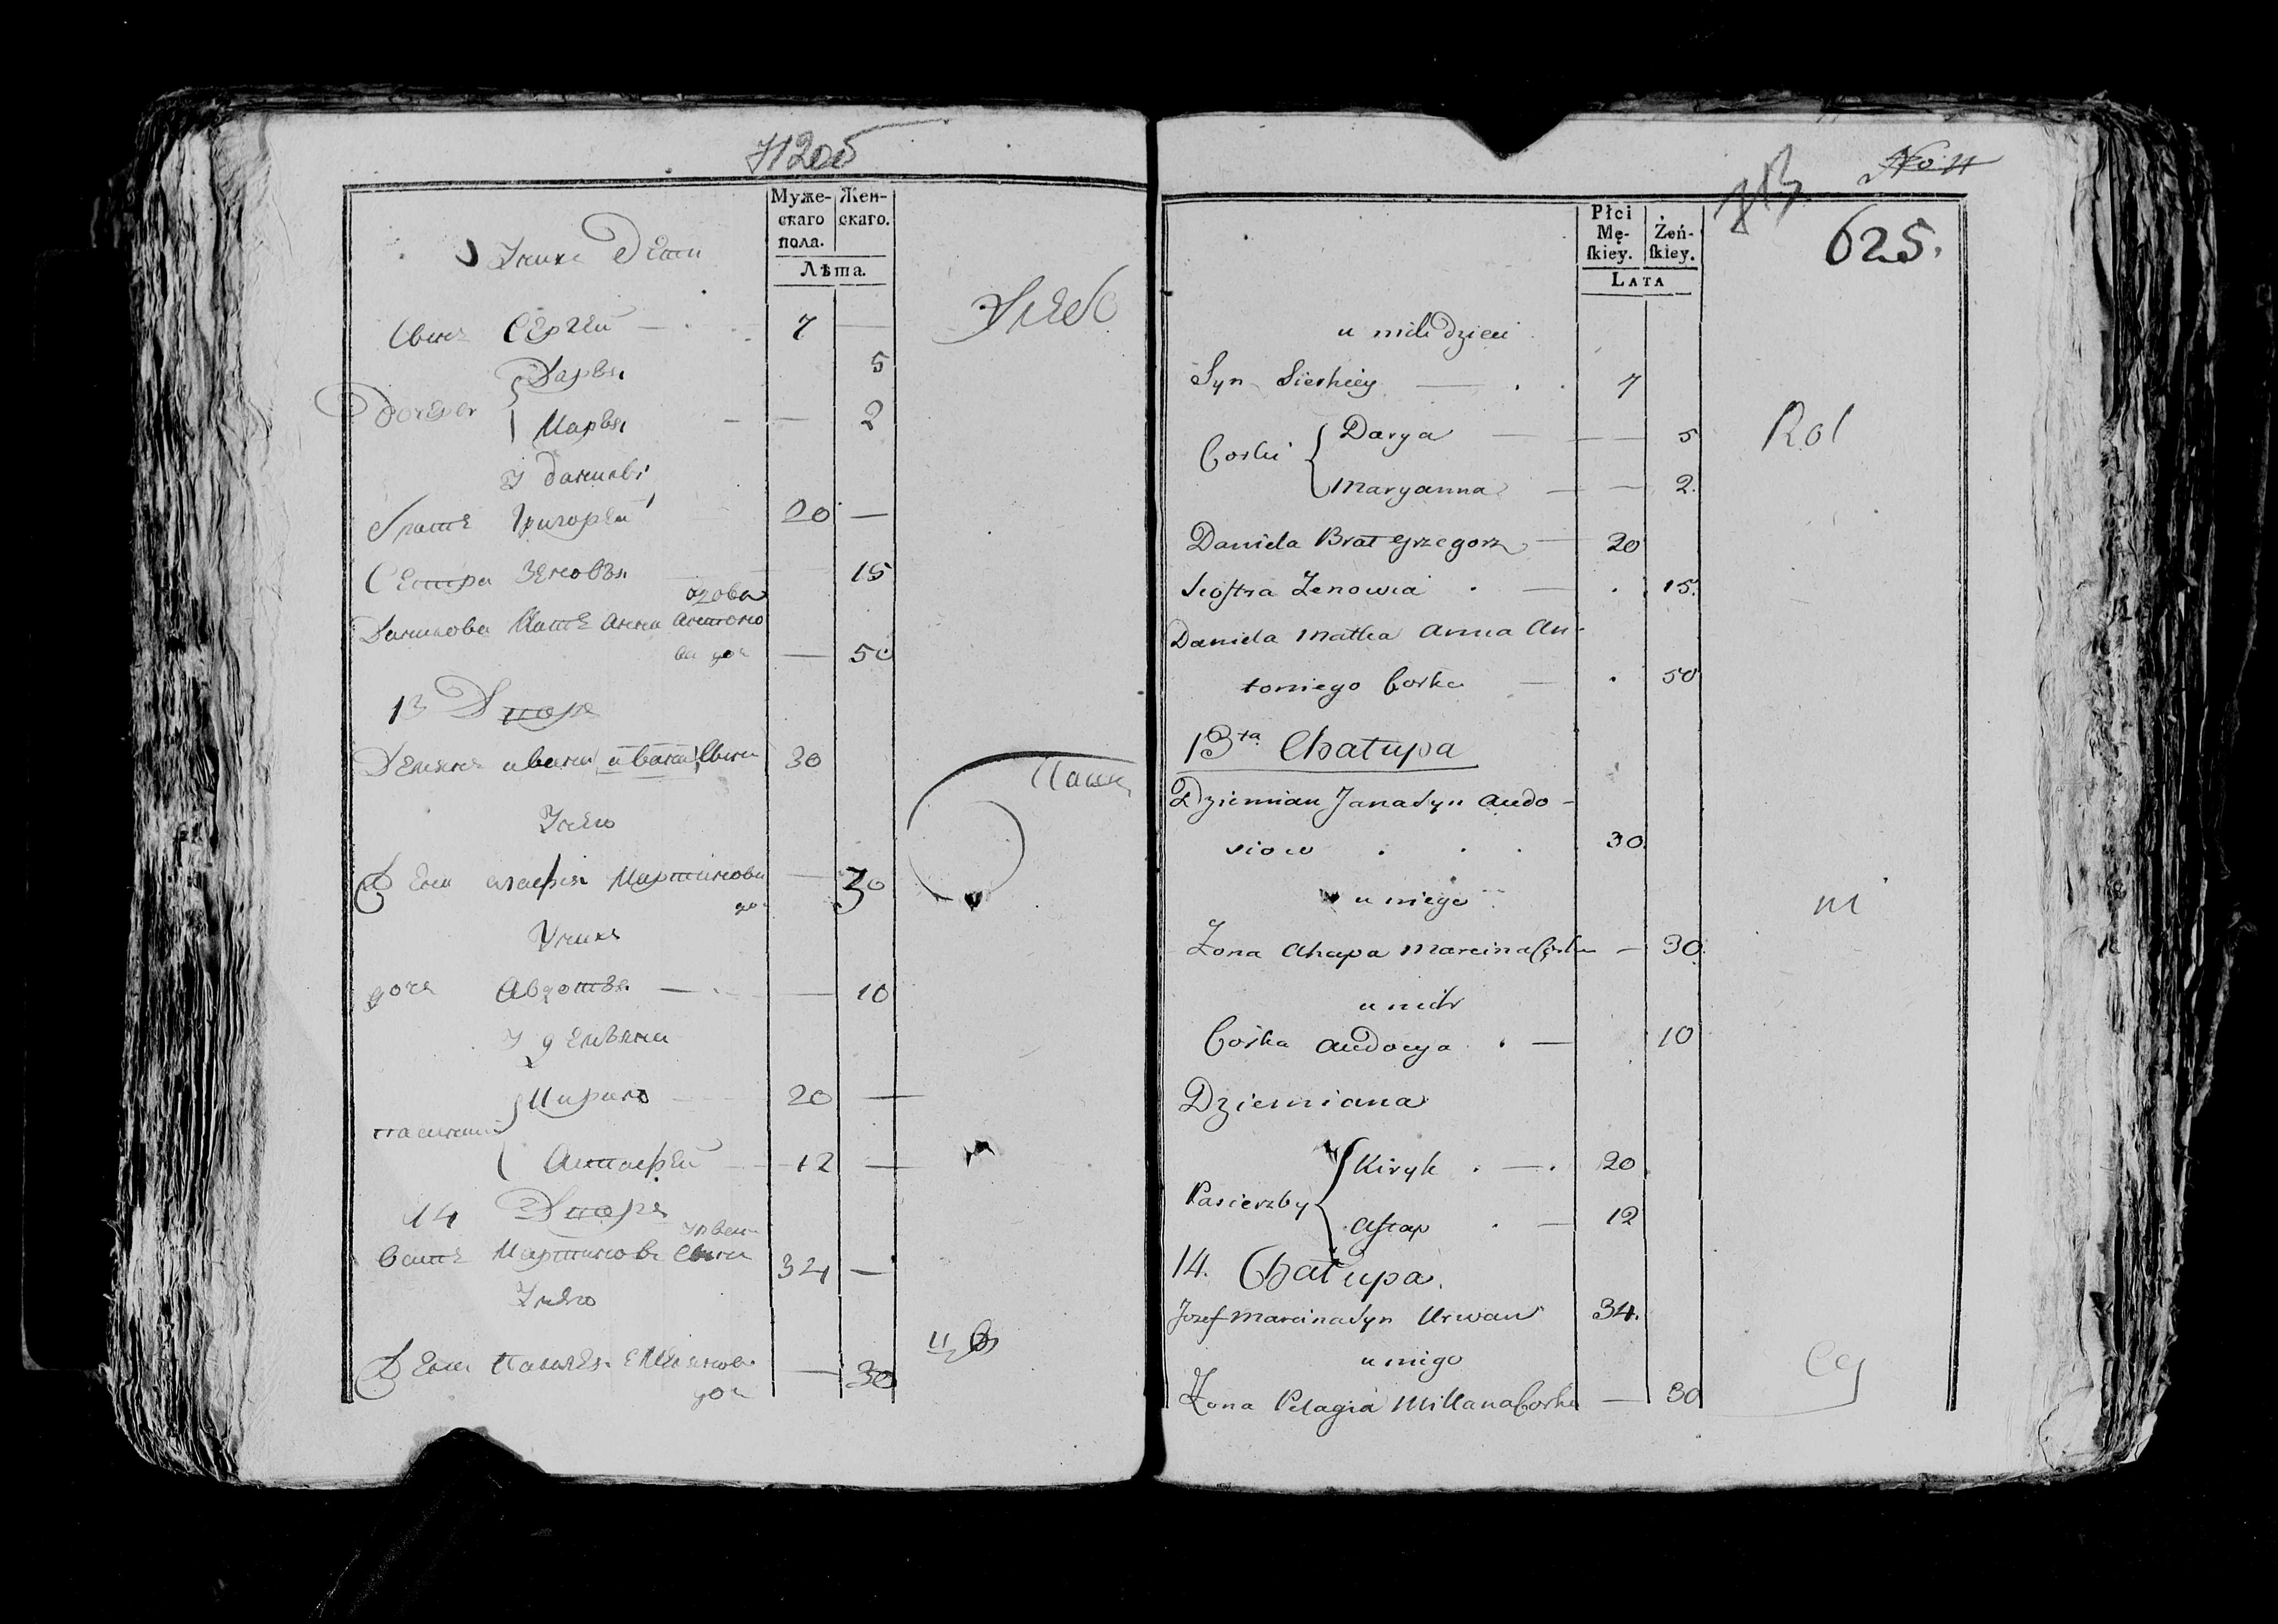 712об
Муже-
скаго
пола.
Жен-
скаго.
Лѣта.
У нихъ Дети
Сынъ Сергей 7
Дарья 5
Дочери
Марья 2
У данилы
братъ Григорей 20
Сестра Зеновья 15
Данилова Мать Анна Антоно
ва доч 50
13 Дворъ
Демянъ 30
У него
Жена агафья Мартинова
доч 30
У нихъ
дочь Авдотья 10
У демьяна
Кирило 20
пасынки
Астафей 12
14 Дворъ
Мартиновъ Сынъ 34
У него
Жена Палагея Емельянов
доч 30
713
No 11
625.
Płci
Mę-
ſkiey.
Żeń-
ſkiey.
LATA
u nich dzieci
Syn Sierhiey 7
Corki
Darya 5
Maryanna 2.
Daniela Brat Grzegorz 20
Siostra Zenowia 15.
Daniela Matka Anna An-
toniego Corka 50
13ta Chałupa
Dziemian Jana Syn Audo-
siow 30.
u niego
Zona Ahapa Marcina Corka 30.
u nich
Corka Audocya 10
Dziemiana
Kiryk 20
Pasierzby
Astap 12
14. Chałupa.
Jozef Marcina Syn Urwan 34.
u niego
Zona Pelagia Corka 30